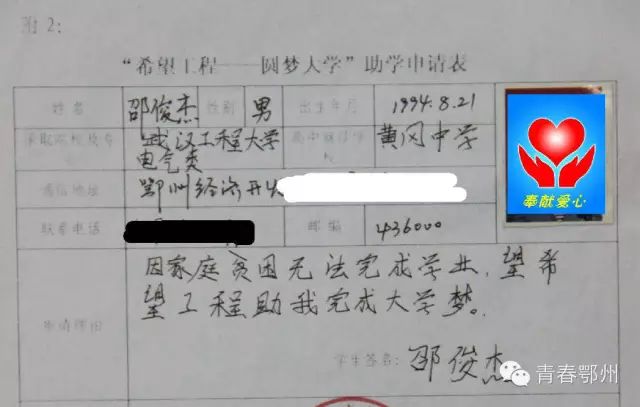 附2:
“希望工程——圆梦大学”助学申请表
姓名 邵俊杰 性别 男 出生年月 1994.8.21
录取院校及专 武汉工程大学 高中就读学 黄冈中学
电气类
通信地址 鄂州经济开发
联系电话 邮编 436000
因家庭贫困无法完成学业,望希
望工程助我完成大学梦。
申请理由
学生签名: 邵俊杰
奉献爱心
青春鄂州